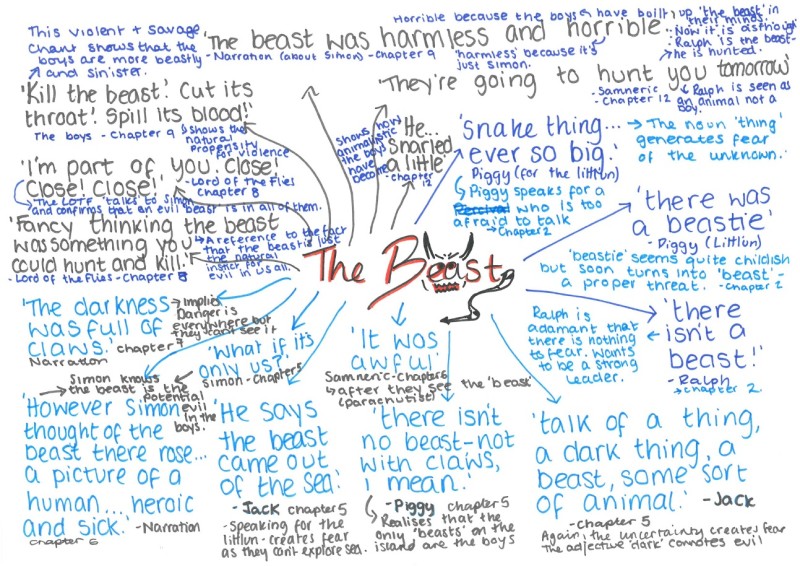 This violent + savage
chant shows that the
boys are more beastly
and sinister.
'Kill the beast! Cut its
throat! Spill its blood!'
The boys - Chapter 9
shows the
natural
propensity
for violence
'The beast was harmless and horrible'
- Narration (about Simon) - Chapter 9
Horrible because the boys have built up 'the beast' in
their minds.
'harmless' because it's
just Simon.
Now it is as though
Ralph is the beast-
he is hunted.
'They're going to hunt you tomorrow'
- Samneric
- Chapter 12
Ralph is seen as
an animal not a
boy.
'I'm part of you. Close!
Close! Close!'
- Lord of the Flies
Chapter 8
The LOTF 'talks' to Simon
and confirms that an evil beast is in all of them.
'Fancy thinking the beast
was something you
could hunt and kill.'
- Lord of the Flies - Chapter 8
A reference to the fact
that the beast is just
the natural
instict for
evil in us all.
shows how
animalistic
the boys
have
become
'He...
snarled
a little'
- chapter
12
'snake thing...
ever so big.'
Piggy (for the littlun)
The noun 'thing'
generates fear
of the unknown.
Piggy speaks for a
who is too
afraid to talk
- Chapter 2
'there was
a beastie'
- Piggy (Littlun)
'beastie' seems quite childish
but soon turns into 'beast' -
a proper threat. - chapter 2
The Beast
'there
isn't a
beast!'
- Ralph
chapter 2
Ralph is
adamant that
there is nothing
to fear. Wants
to be a strong
leader.
'The darkness
was full of
claws.' chapter 7
Narration
Implies
Danger is
everywhere but
they can't see it
'What if it's
only us?'
Simon - Chapter 5
Simon knows
the beast is the
potential
evil
in the
boys.
'It was
awful'
Samneric - Chapter 6
after they see the 'beast'
(parachutist)
'However Simon
thought of the
beast there rose...
a picture of a
human... heroic
and sick.' - Narration
Chapter 6
'He says
the beast
came out
of the sea.'
- Jack chapter 5
- Speaking for the
littlun - creates fear
as they can't explore sea.
'there isn't
no beast - not
with claws,
I mean.'
- Piggy chapter 5
Realises that the
only 'beasts' on the
island are the boys
'talk of a thing,
a dark thing, a
beast, some sort
of animal.' - Jack
- Chapter 5
Again, the uncertainty creates fear
The adjective 'dark' connotes evil